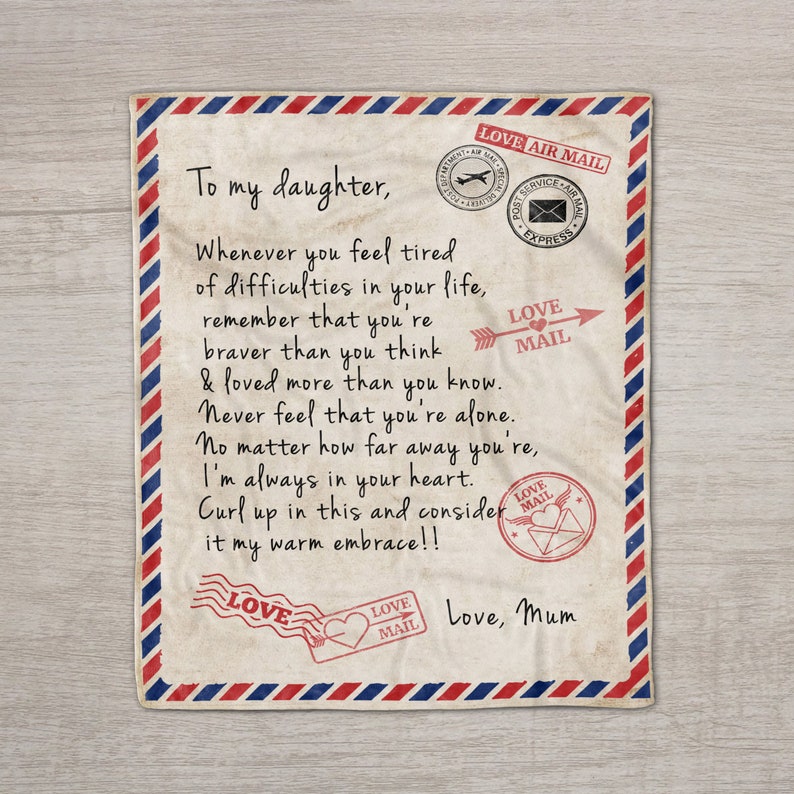 LOVE AIR MAIL
POST DEPARTMENT • AIR MAIL • SPECIAL DELIVERY •
POST SERVICE • AIR MAIL
EXPRESS
To my daughter,
Whenever you feel tired
of difficulties in your life,
remember that you're
braver than you think
& loved more than you know.
Never feel that you're alone.
No matter how far away you're,
I'm always in your heart.
Curl up in this and consider
it my warm embrace!!
LOVE
MAIL
LOVE
MAIL
LOVE
LOVE
MAIL
Love, Mum